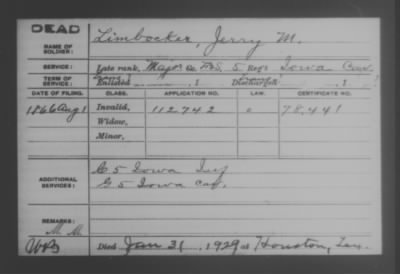 DEAD
NAME OF SOLDIER: Limbocker, Jerry M.
SERVICE: Late rank, Major Co. F&S, 5 Reg't Iowa Cav.
TERM OF SERVICE: Enlisted , 1 Discharged , 1
DATE OF FILING. CLASS. APPLICATION NO. LAW. CERTIFICATE NO.
1866 Aug 1 Invalid, 112742 78,441
Widow,
Minor,
ADDITIONAL SERVICES: C 5 Iowa Inf
G 5 Iowa Cav.
REMARKS:
Died Jan 31, 1929 at Houston, Tex.